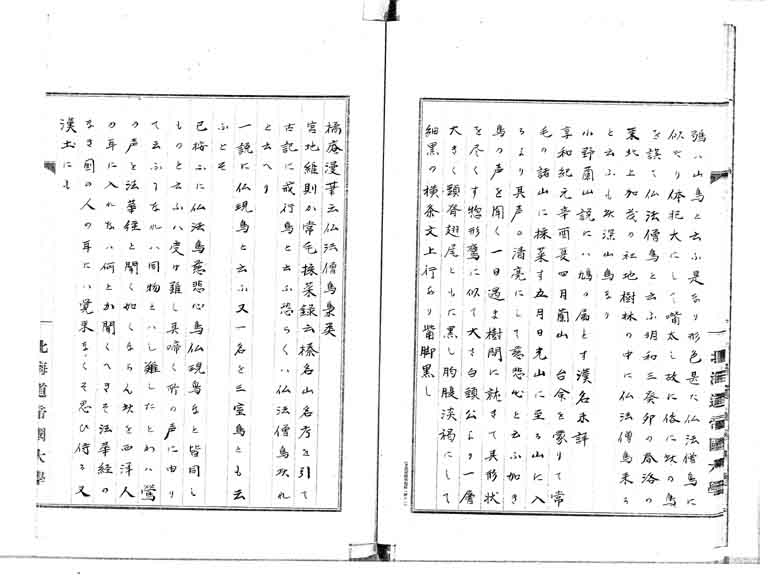 鴉ハ山鳥と云ふ是なり形色是に仏法僧鳥に
似たり体orz大にして嘴太し故に俗に此の鳥
を誤て仏法僧鳥と云ふ明和三癸卯の春洛の
東北上加茂の社地樹林の中に仏法僧鳥来る
と云ふも此深山鳥なり
小野蘭山説にハ鳩の属とす漢名未詳
享和紀元辛酉夏四月蘭山 台命を蒙りて常
毛の諸山に採薬す五月日光山に至る山に入
るより其声の清亮にして慈悲心と云ふ如き
鳥の声を聞く一日過ま樹間に就きて其形状
を尽くす惣形鷹に似て大さ白頭公より一層
大きく頭脊翅尾ともに黒し胸腹淡褐にして
細黒の横条文上行あり嘴脚黒し
橘庵漫筆云仏法僧鳥梟類
宮地維則か常毛採薬録云榛名山名考を引て
古記に戒行鳥と云ふ恐らくハ仏法僧鳥欤れ
と云へり
一説に仏現鳥と云ふ又一名を三宝鳥とも云
ふとそ
已按ふに仏法鳥慈悲心鳥仏現鳥など皆同し
ものと云ふハ受け難し其啼く所の声に由り
て云ふ了なれハ同物とハし難したとわハ鶯
の声を法華経と聞く如くならん欤を西洋人
の耳に入れなハ何とか聞くへきそ法華経の
なき国の人の耳にハ覚束なくそ思ひ侍る又
漢土にも
北海道帝国大学
北海道帝國大學